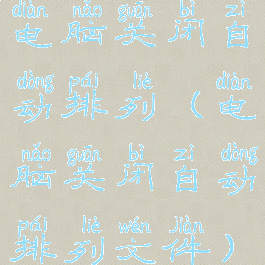 diàn nǎo guān bì zì
电脑关闭自
dòng pái liè diàn
动排列（电
nǎo guān bì zì dòng
脑关闭自动
pái liè wén jiàn
排列文件）